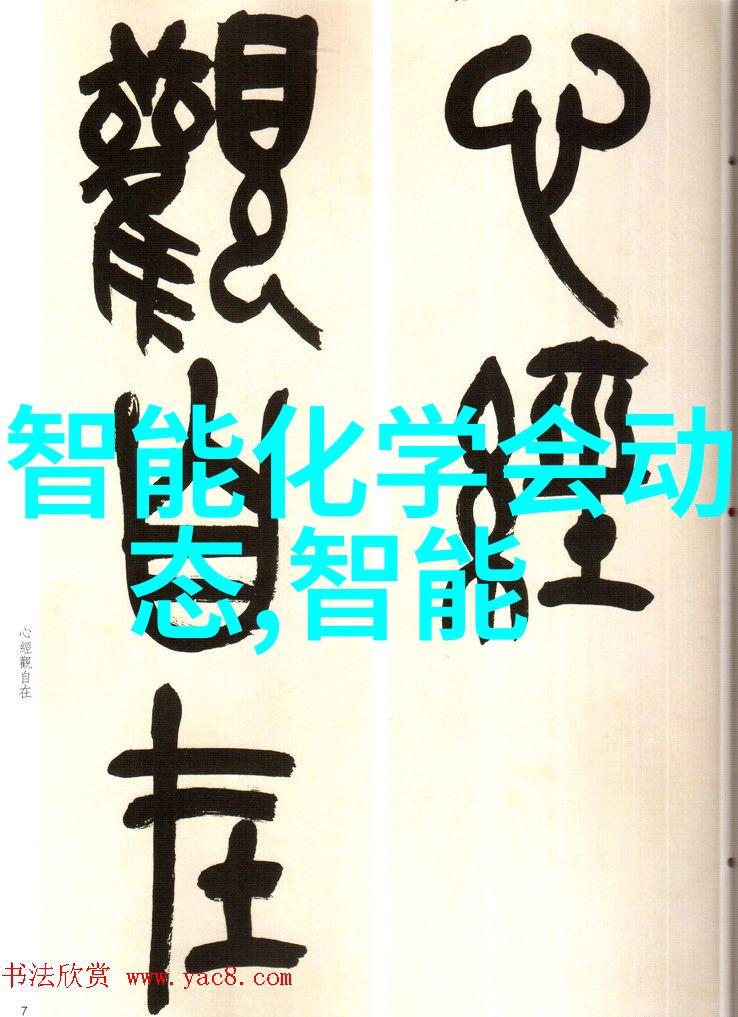 心經
觀自在
智能化学会动
态,智能
心經觀自在
书法欣赏 www.yac8.com
7